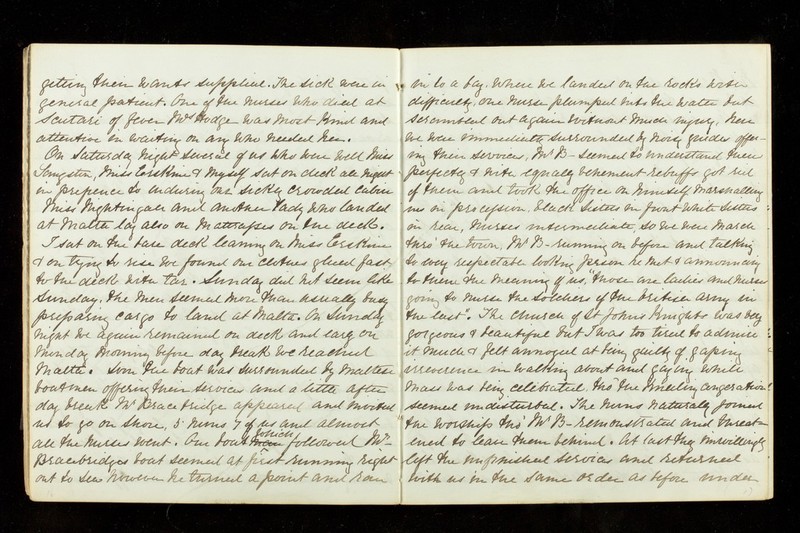 getting their wants supplied. The sick were in
general patient. One of the nurses who died at
Scutari of fever Mrs Hodge was most kind and
attentive in waiting on any who needed her.
On Saturday night several of us who were well Miss
Langston, Miss Erskine & myself sat on deck all night
in preference to enduring one sickly crowded cabin
Miss Nightingale and another Lady who landed
at Malta lay also on Mattrasses on the deck.
I sat on the bare deck leaning on Miss Erskine
& on trying to rise we found our clothes glued fast
to the deck with tar. Sunday did not seem like
Sunday, the men seemed more than usually busy
preparing cargo to land at Malta. On Sunday
night we again remained on deck and early on
Monday morning before day break we reached
Malta. Soon the boat was surrounded by Maltese
boatmen offering their services and a little after
day break Mr Bracebridge appeared and invited
us to go on shore, 5 nuns 7 of us and almost
all the nurses went. Our boat which followed Mr
Bracebridges boat seemed at first running right
out to sea however he turned a point and ran
in to a bay. When we landed on the rocks with
difficulty, one nurse plumped into the water but
scrambled out again without much injury, here
we were immediately surrounded by noisy guides offer-
ing their services, Mr B- seemed to understand them
perfectly & with equally vehement rebuffs got rid
of them and took the office on himself, Marshalling
us in procession. Black Sisters in front White Sisters
in rear, Nurses intermediate, so we were march
thro' the town, Mr B- running on before and talking
to every respectable looking person he met & announcing
to them the meaning of us, "those are ladies and nurses
going to nurse the soldiers of the British army in
the east". The church of St Johns Knights was very
gorgeous & beautiful but I was too tired to admire
it much & felt annoyed at being guilty of gaping
irreverence in walking about and gazing while
Mass was being celebrated tho the kneeling congregation
seemed undisturbed. The Nuns naturally joined
the worship tho' Mr B- remonstrated and threat-
ened to leave them behind. At last they unwillingly
left the unfinished services and returned
with us in the same order as before under